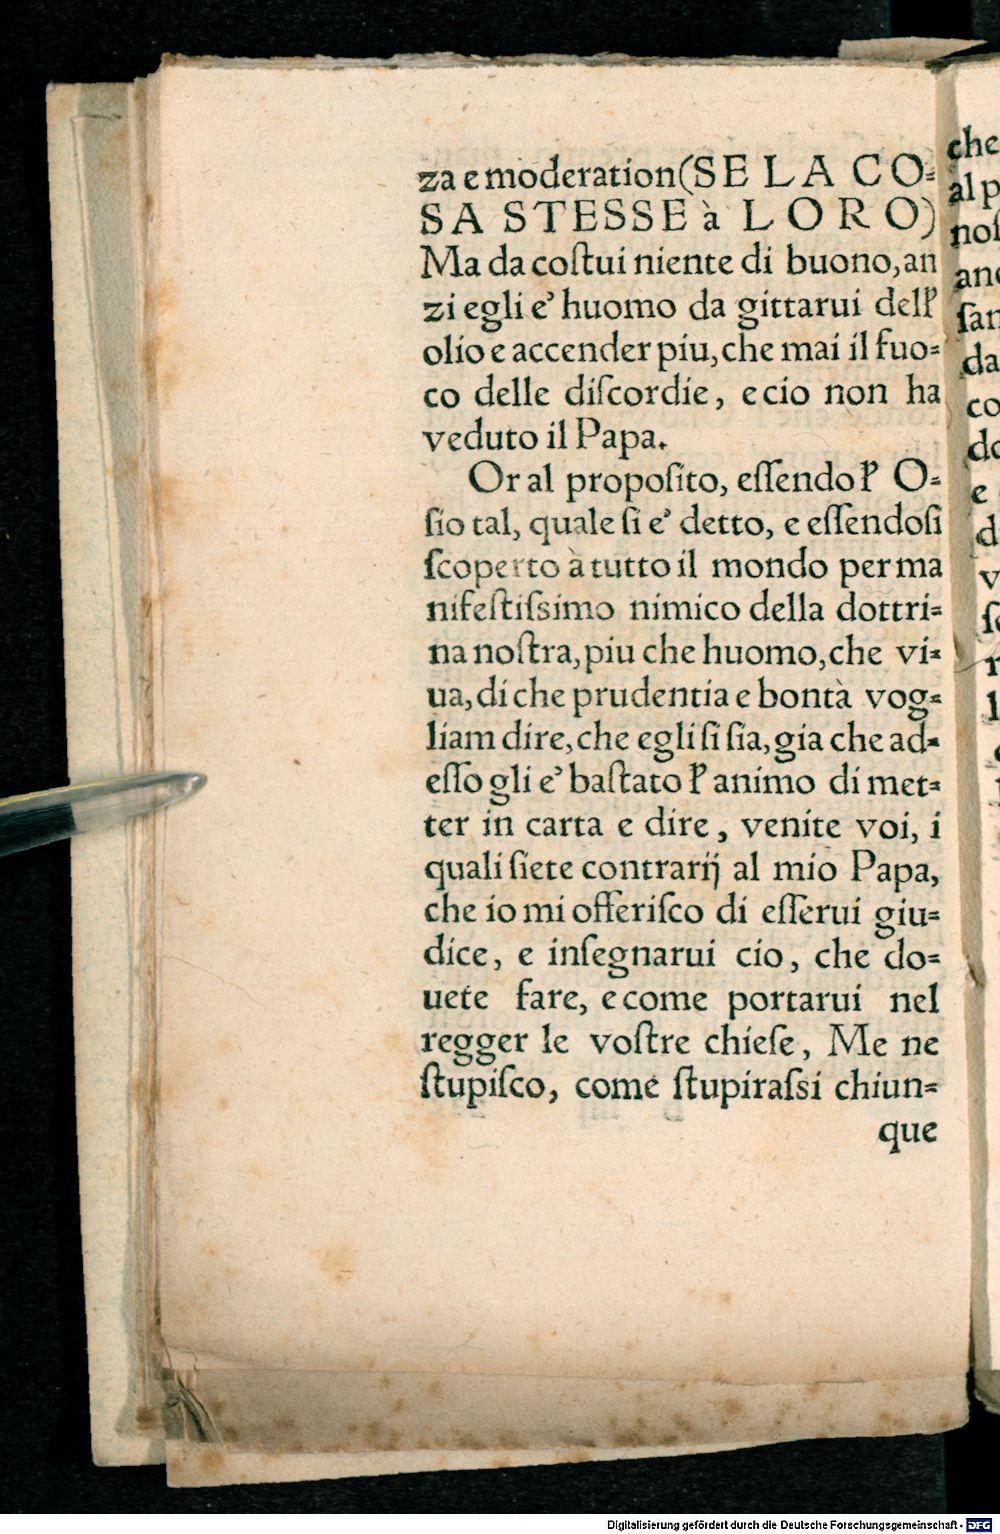 za e moderation(SE LA CO-
SA STESSE à LORO)
Ma da coſtui niente di buono, an
zi egli e' huomo da gittarui dell'
olio e accender piu, che mai il fuo-
co delle diſcordie, e cio non ha
veduto il Papa.
Or al propoſito, eſſendo l' O-
ſio tal, quale ſi e' detto, e eſſendoſi
ſcoperto à tutto il mondo per ma
nifeſtiſsimo nimico della dottri-
na noſtra, piu che huomo, che vi-
ua, di che prudentia e bontà vog-
liam dire, che egli ſi ſia, gia che ad-
eſſo gli e' baſtato l' animo di met-
ter in carta e dire, venite voi, i
quali ſiete contrarij al mio Papa,
che io mi offeriſco di eſſerui giu-
dice, e inſegnarui cio, che do-
uete fare, e come portarui nel
regger le voſtre chieſe, Me ne
ſtupiſco, come ſtupiraſsi chiun-
que
che
al p
Digitalisierung gefördert durch die Deutsche Forschungsgemeinschaft - DFG